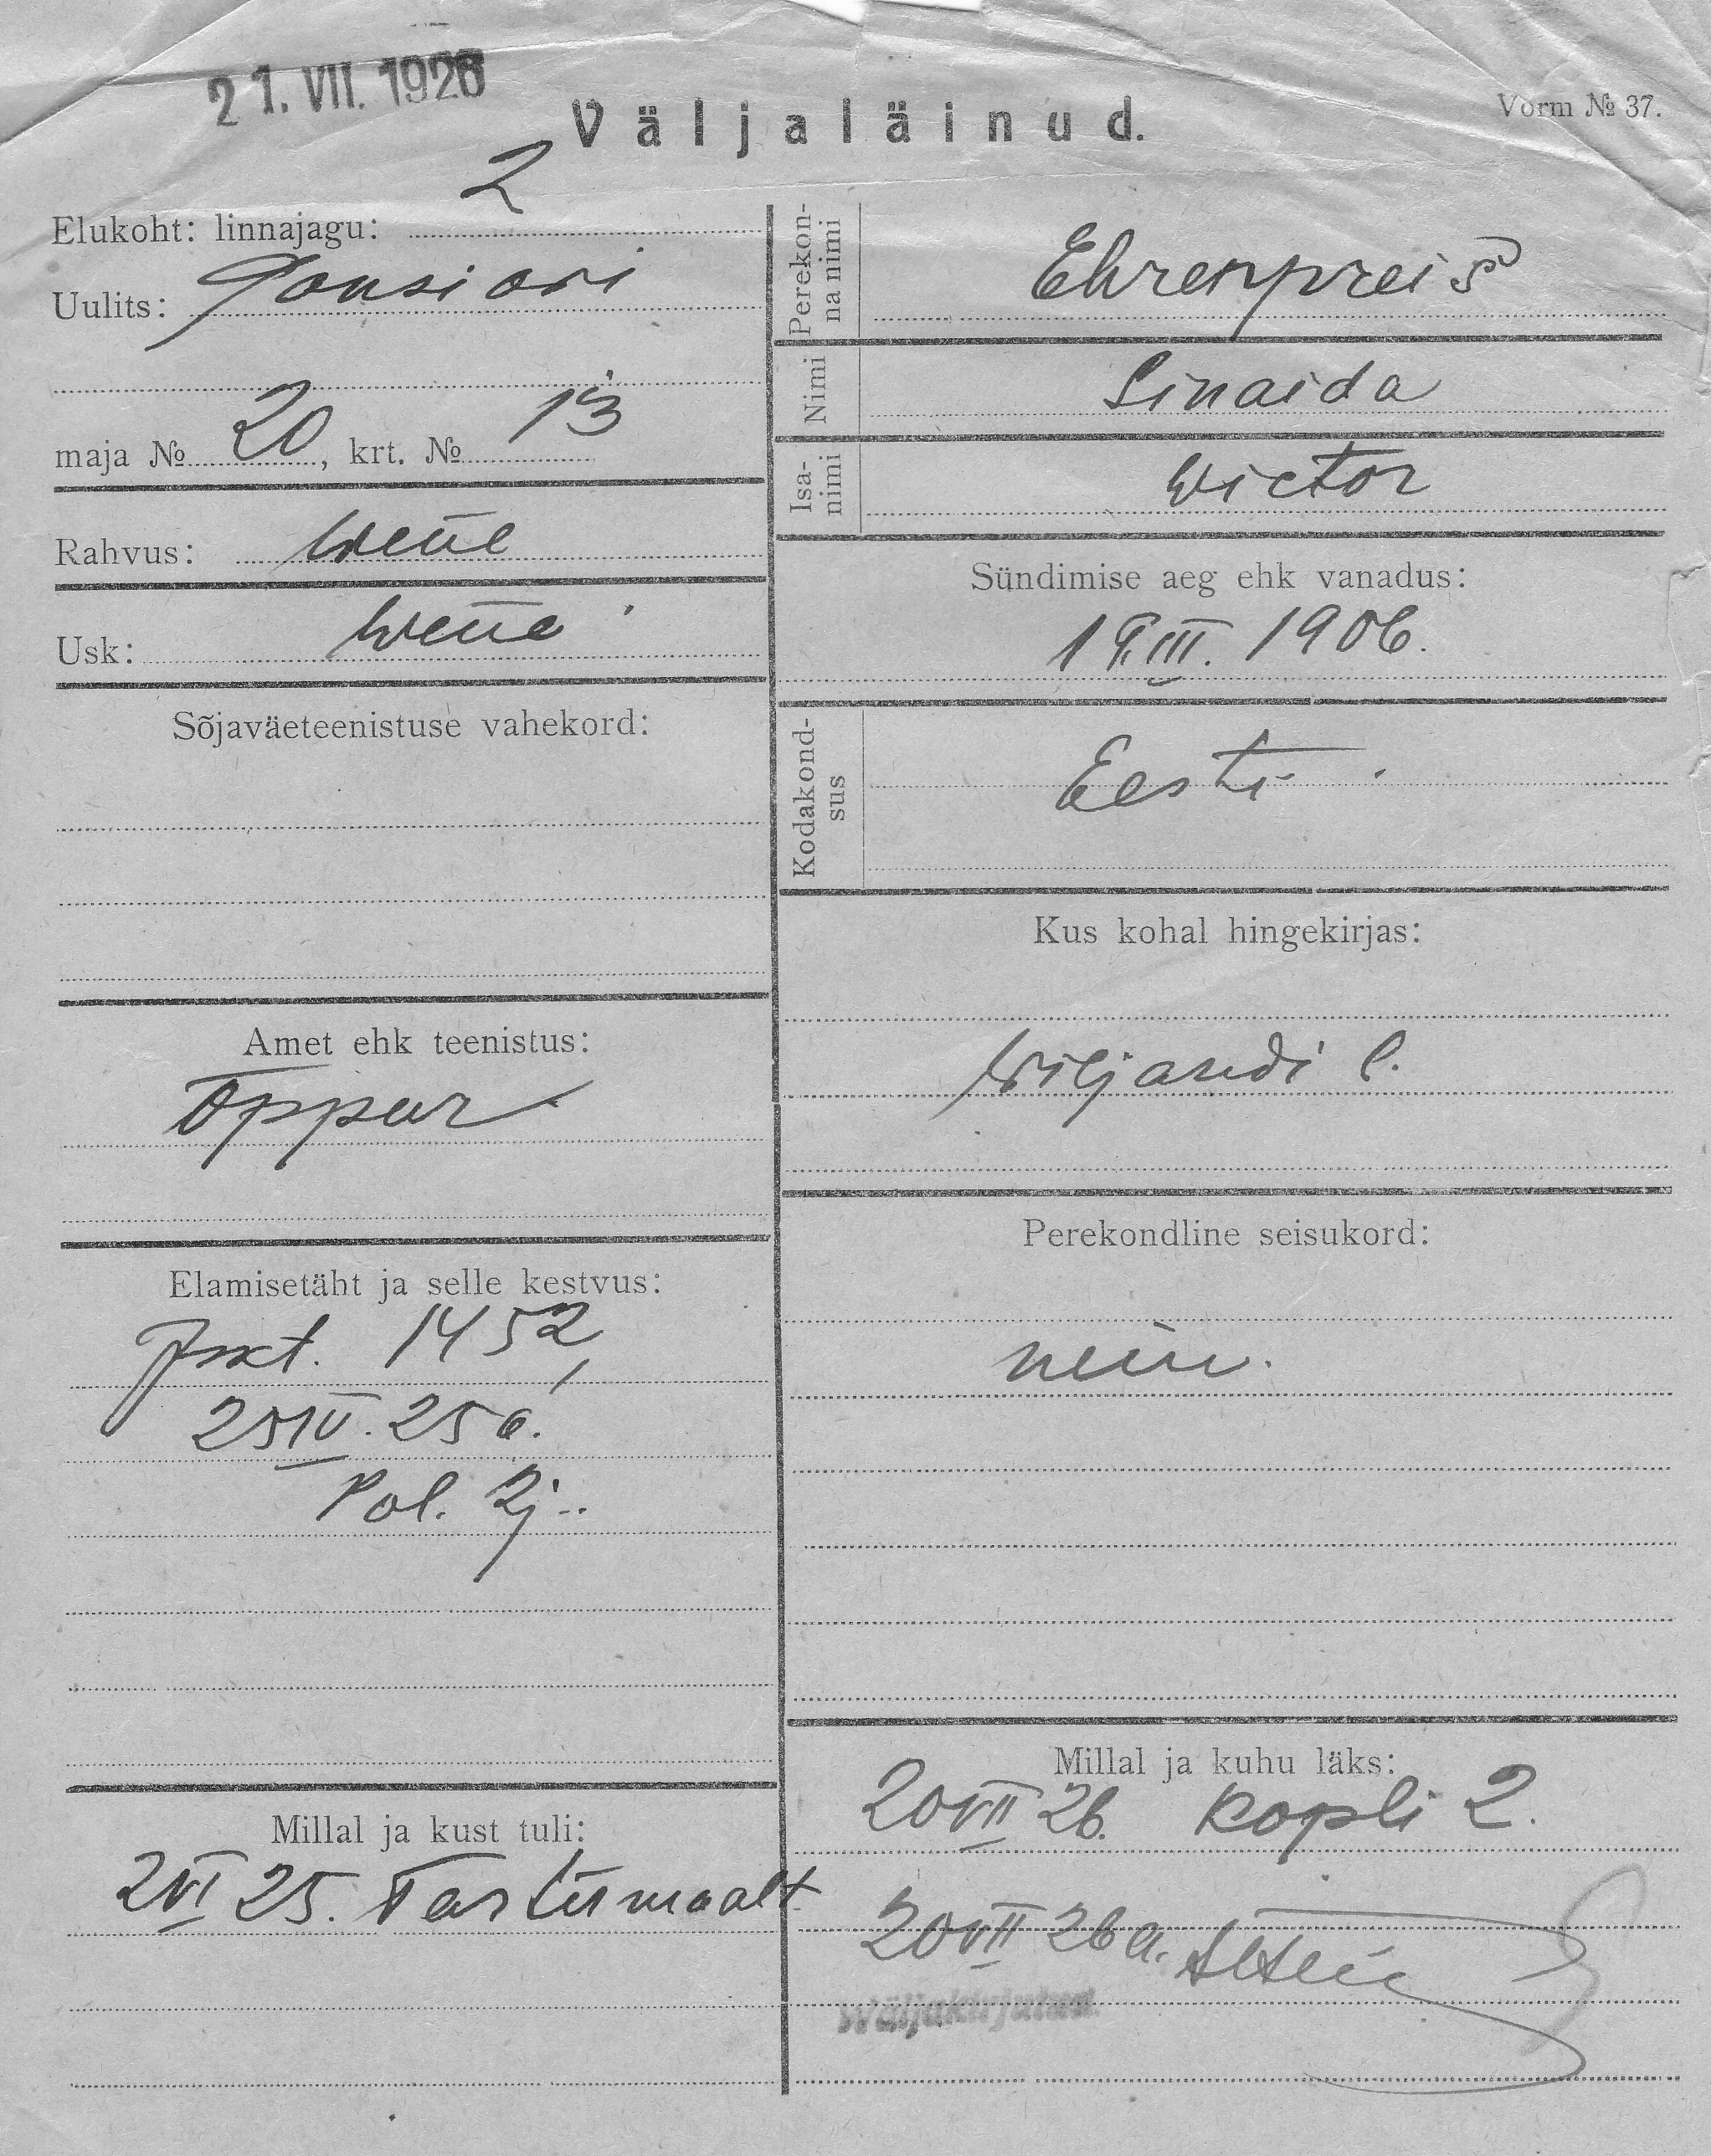 21. VII. 1926
Väljaläinud.
Vorm № 37.
Elukoht: linnajagu: 2
Uulits: Gonsiori
maja № 20, krt. № 13
Rahvus: Wene
Usk: Wene
Sõjaväeteenistuse vahekord:
Amet ehk teenistus:
Õppur
Elamisetäht ja selle kestvus:
1452
25 IV. 25 a.
Pol. 2j.
Millal ja kust tuli:
2 VI 25. Tartumaalt
Perekon-
na nimi
Ehrenpreis
Nimi
Sinaida
Isa-
nimi
Wictor
Sündimise aeg ehk vanadus:
19. III. 1906.
Kodakond-
sus
Eesti
Kus kohal hingekirjas:
Wiljandi l.
Perekondline seisukord:
neiu.
Millal ja kuhu läks:
20 VII 26. Kopli 2.
20 VII 26 a.
Väljakirjutus